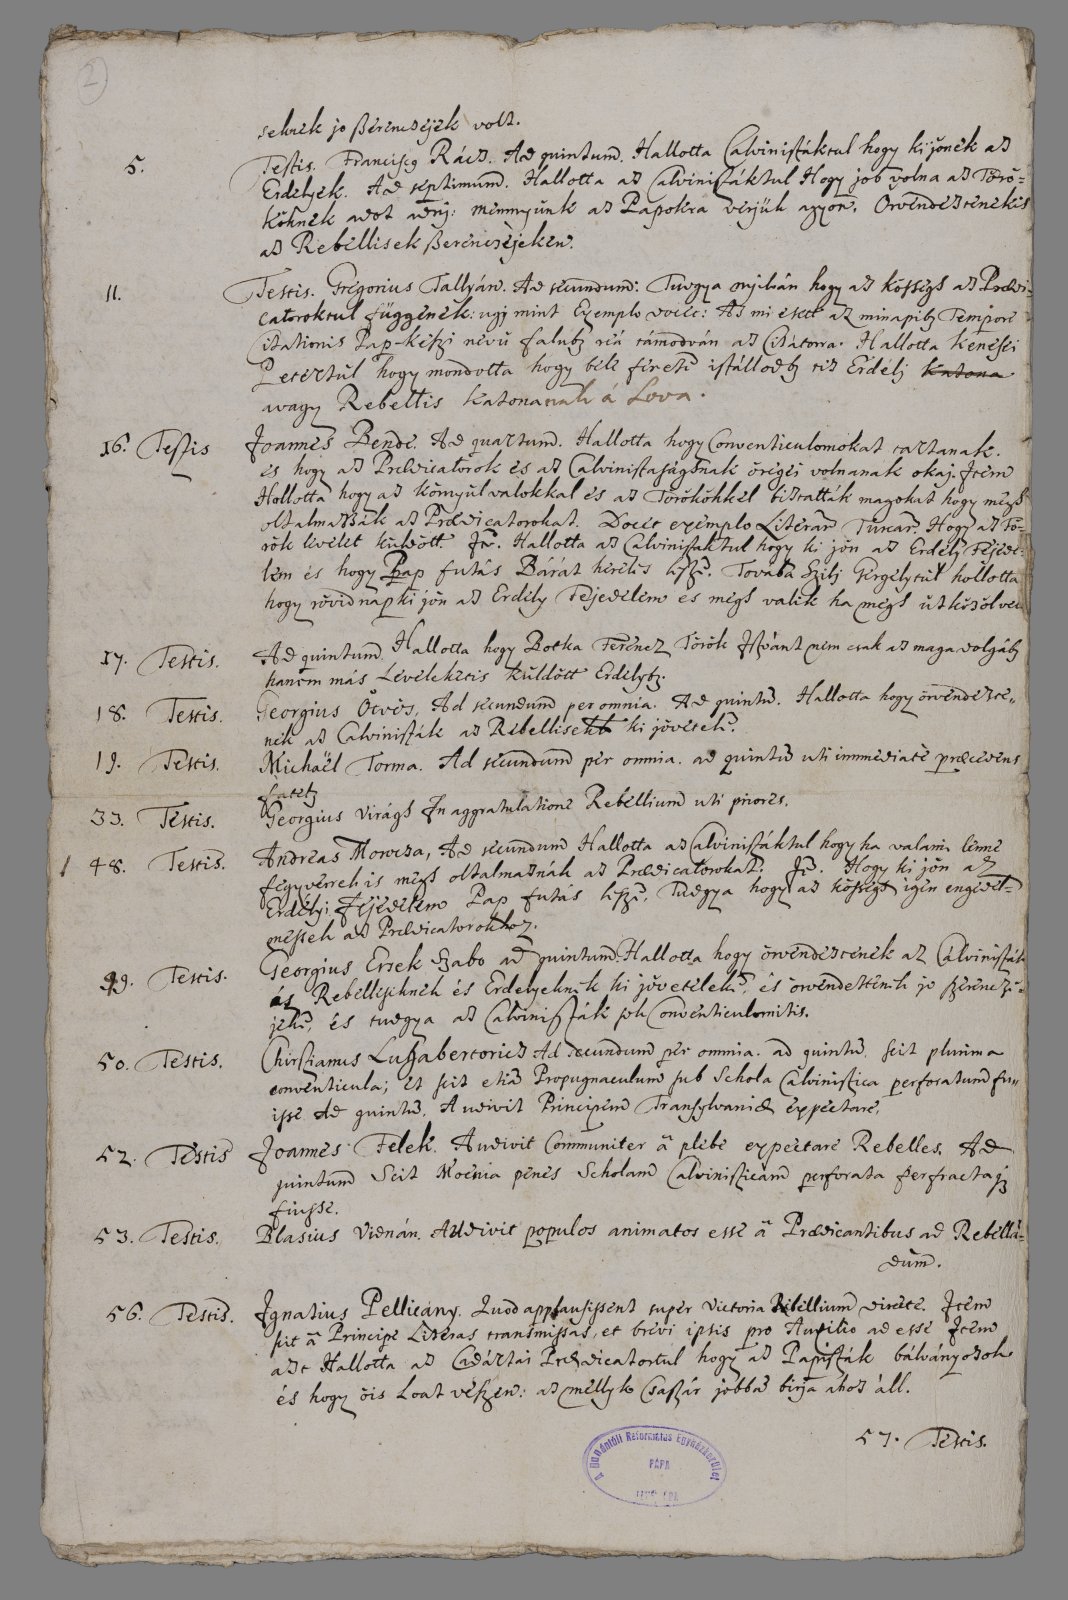 2
seknek jo szerencséjek volt.
5. Testis. Franciscq Rácz. Ad quintum. Hallotta Calvinistáktul hogy ki jönek az
Erdélyiek. Ad septimum. Hallotta az Calvinistáktul Hogy job volna az Törö-
köknek adot adnj: mennyünk az Papokra verjük agyon. Örvendeztenekis
az Rebellisek szerencséjeken.
11. Testis. Gregorius Tallyán. Ad secundum: Tudgya nyilván hogy az kössigh az Prædi-
catoroktul függenek: ugj mint Exemplo docet: Az mi esett az minapib Tempore
Citationis Pap-készi nevü falub reá támodván az Citátorra. Hallotta Kenései
Petertül hogy mondotta hogy bele
avagy Rebellis katonanak á Lova.
16. Testis Joannes Bende. Ad quartum. Hallotta hogy Conventiculomokat tartanak.
és hogy az Prædicatorok és az Calvinistaságnak öregei volnanak okaj. Item
Hollotta hogy az környül valokkal és az Törökökkel biztatták magokat hogy mégh
oltalmazzák az Prædicatorokat. Docet exemplo Literar Turcar. Hogy az Tö-
rök levelet küldött. It. Hallotta az Calvinistaktul hogy ki jön az Erdélj Fejede-
lem és hogy Pap futás Bárát kerelis
hogy rövid nap ki jön az Erdély Fejedelem es mégh valik ha mégh
17. Testis. Ad quintum. Hallotta hogy Botka Ferencz Török Istvánt nem csak az maga dolgáb
hanem más Levelekelis küldött Erdélyb.
18. Testis. Georgius Ötvös, Ad secundum per omnia. Ad quintu. Hallotta hogy örvendezte-
nek az Calvinisták az Rebellisek ki jövetele.
19. Testis. Michaël Torma. Ad secundum per omnia. ad quintu uti immediate præcedens
fatetq
33. Testis. Georgius Virágh In aggratulatione Rebellium uti priores.
48. Testis. Andreas Mowcza, Ad secundum Hallotta az Calvinistáktul hogy ha valami lenne
fegyverrel is mégh oltalmaznák az Prædicatorokat. It. Hogy ki jön az
Erdélyi Fejedelem Pap futás Tudgya hogy az kössigh igen engedel-
messek az Prædicatorokhoz.
49. Testis. Georgius Ersek Szabo ad quintum. Hallotta hogy örvendeztenek az Calvinisták
az Rebelliseknek és Erdelyeknek ki jövetelek, és örvendettenek jo szerencsé-
jek, és tudgya az Calvinisták sok Conventiculomitis.
50. Testis. Christianus Ad secundum per omnia. ad quintu. scit plurima
conventicula; et scit etia Propugnaculum sub Schola Calvinistica perforatum fu-
isse. Ad quintu. Audivit Principem Transylvaniæ expectare.
52. Testis Joannes Felek. Audivit communiter ã plebe expectare Rebelles. Ad
quintum Scit Moenia penes Scholam Calvinisticam perforata perfractaq
fuisse.
53. Testis. Blasius Vidnán. Audivit populos animatos esse ã Prædicantibus ad Rebellã-
dum.
56. Testis. Ignatius Pellicány. Quod applausissent super victoria Rebellium directe. Item
scit ã Principe Literas transmissas, et brevi ipsis pro Auxilio ad esse Item
azt Hallotta az Prædicatortul hogy az Papisták bálványozok
és hogy öis Loat veszen: az mellyk Csaszár jobbá birja ahoz áll.
57. Testis.
A Dunántúli Református Egyházkerület
PÁPA